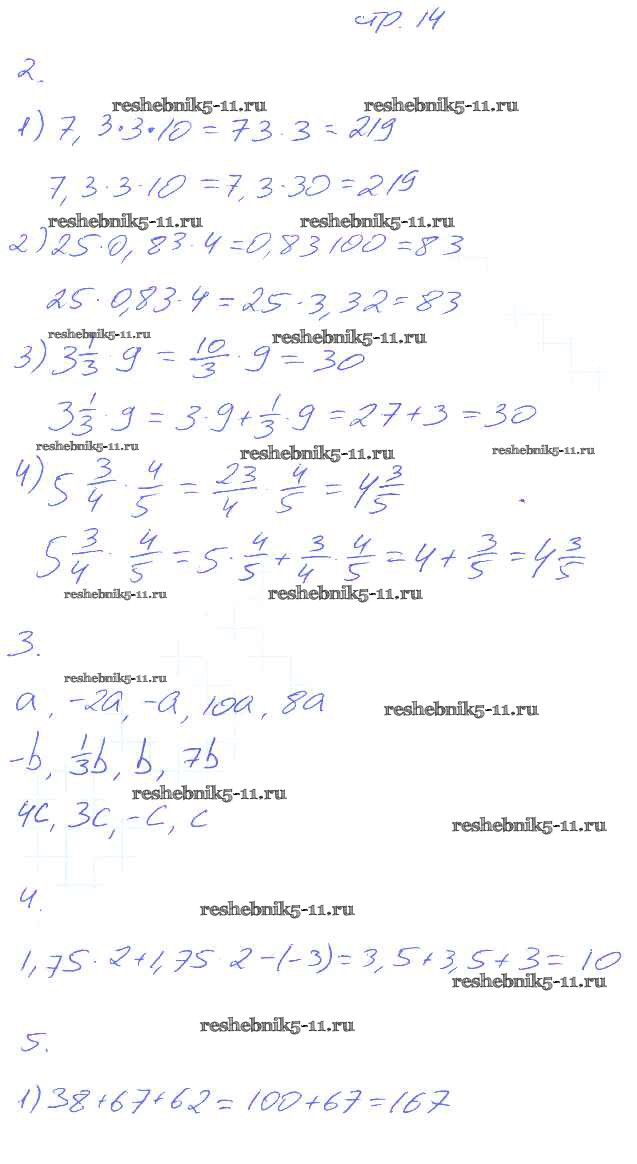 стр. 14
2.
reshebnik5-11.ru reshebnik5-11.ru
1) 7,3·3·10 = 73·3 = 219
7,3·3·10 = 7,3·30 = 219
reshebnik5-11.ru reshebnik5-11.ru
2) 25·0,83·4 = 0,83 100 = 83
25·0,83·4 = 25·3,32 = 83
reshebnik5-11.ru reshebnik5-11.ru
3) 3 1/3 · 9 = 10/3 · 9 = 30
3 1/3 · 9 = 3·9 + 1/3 · 9 = 27 + 3 = 30
reshebnik5-11.ru reshebnik5-11.ru reshebnik5-11.ru
4) 5 3/4 · 4/5 = 23/4 · 4/5 = 4 3/5
5 3/4 · 4/5 = 5 · 4/5 + 3/4 · 4/5 = 4 + 3/5 = 4 3/5
reshebnik5-11.ru reshebnik5-11.ru
3.
reshebnik5-11.ru
a, -2a, -a, 10a, 8a
reshebnik5-11.ru
-b, 1/3 b, b, 7b
reshebnik5-11.ru
4c, 3c, -c, c
reshebnik5-11.ru
4.
reshebnik5-11.ru
1,75·2+1,75·2-(-3)=3,5+3,5+3=10
reshebnik5-11.ru
reshebnik5-11.ru
5.
1) 38+67+62=100+67=167